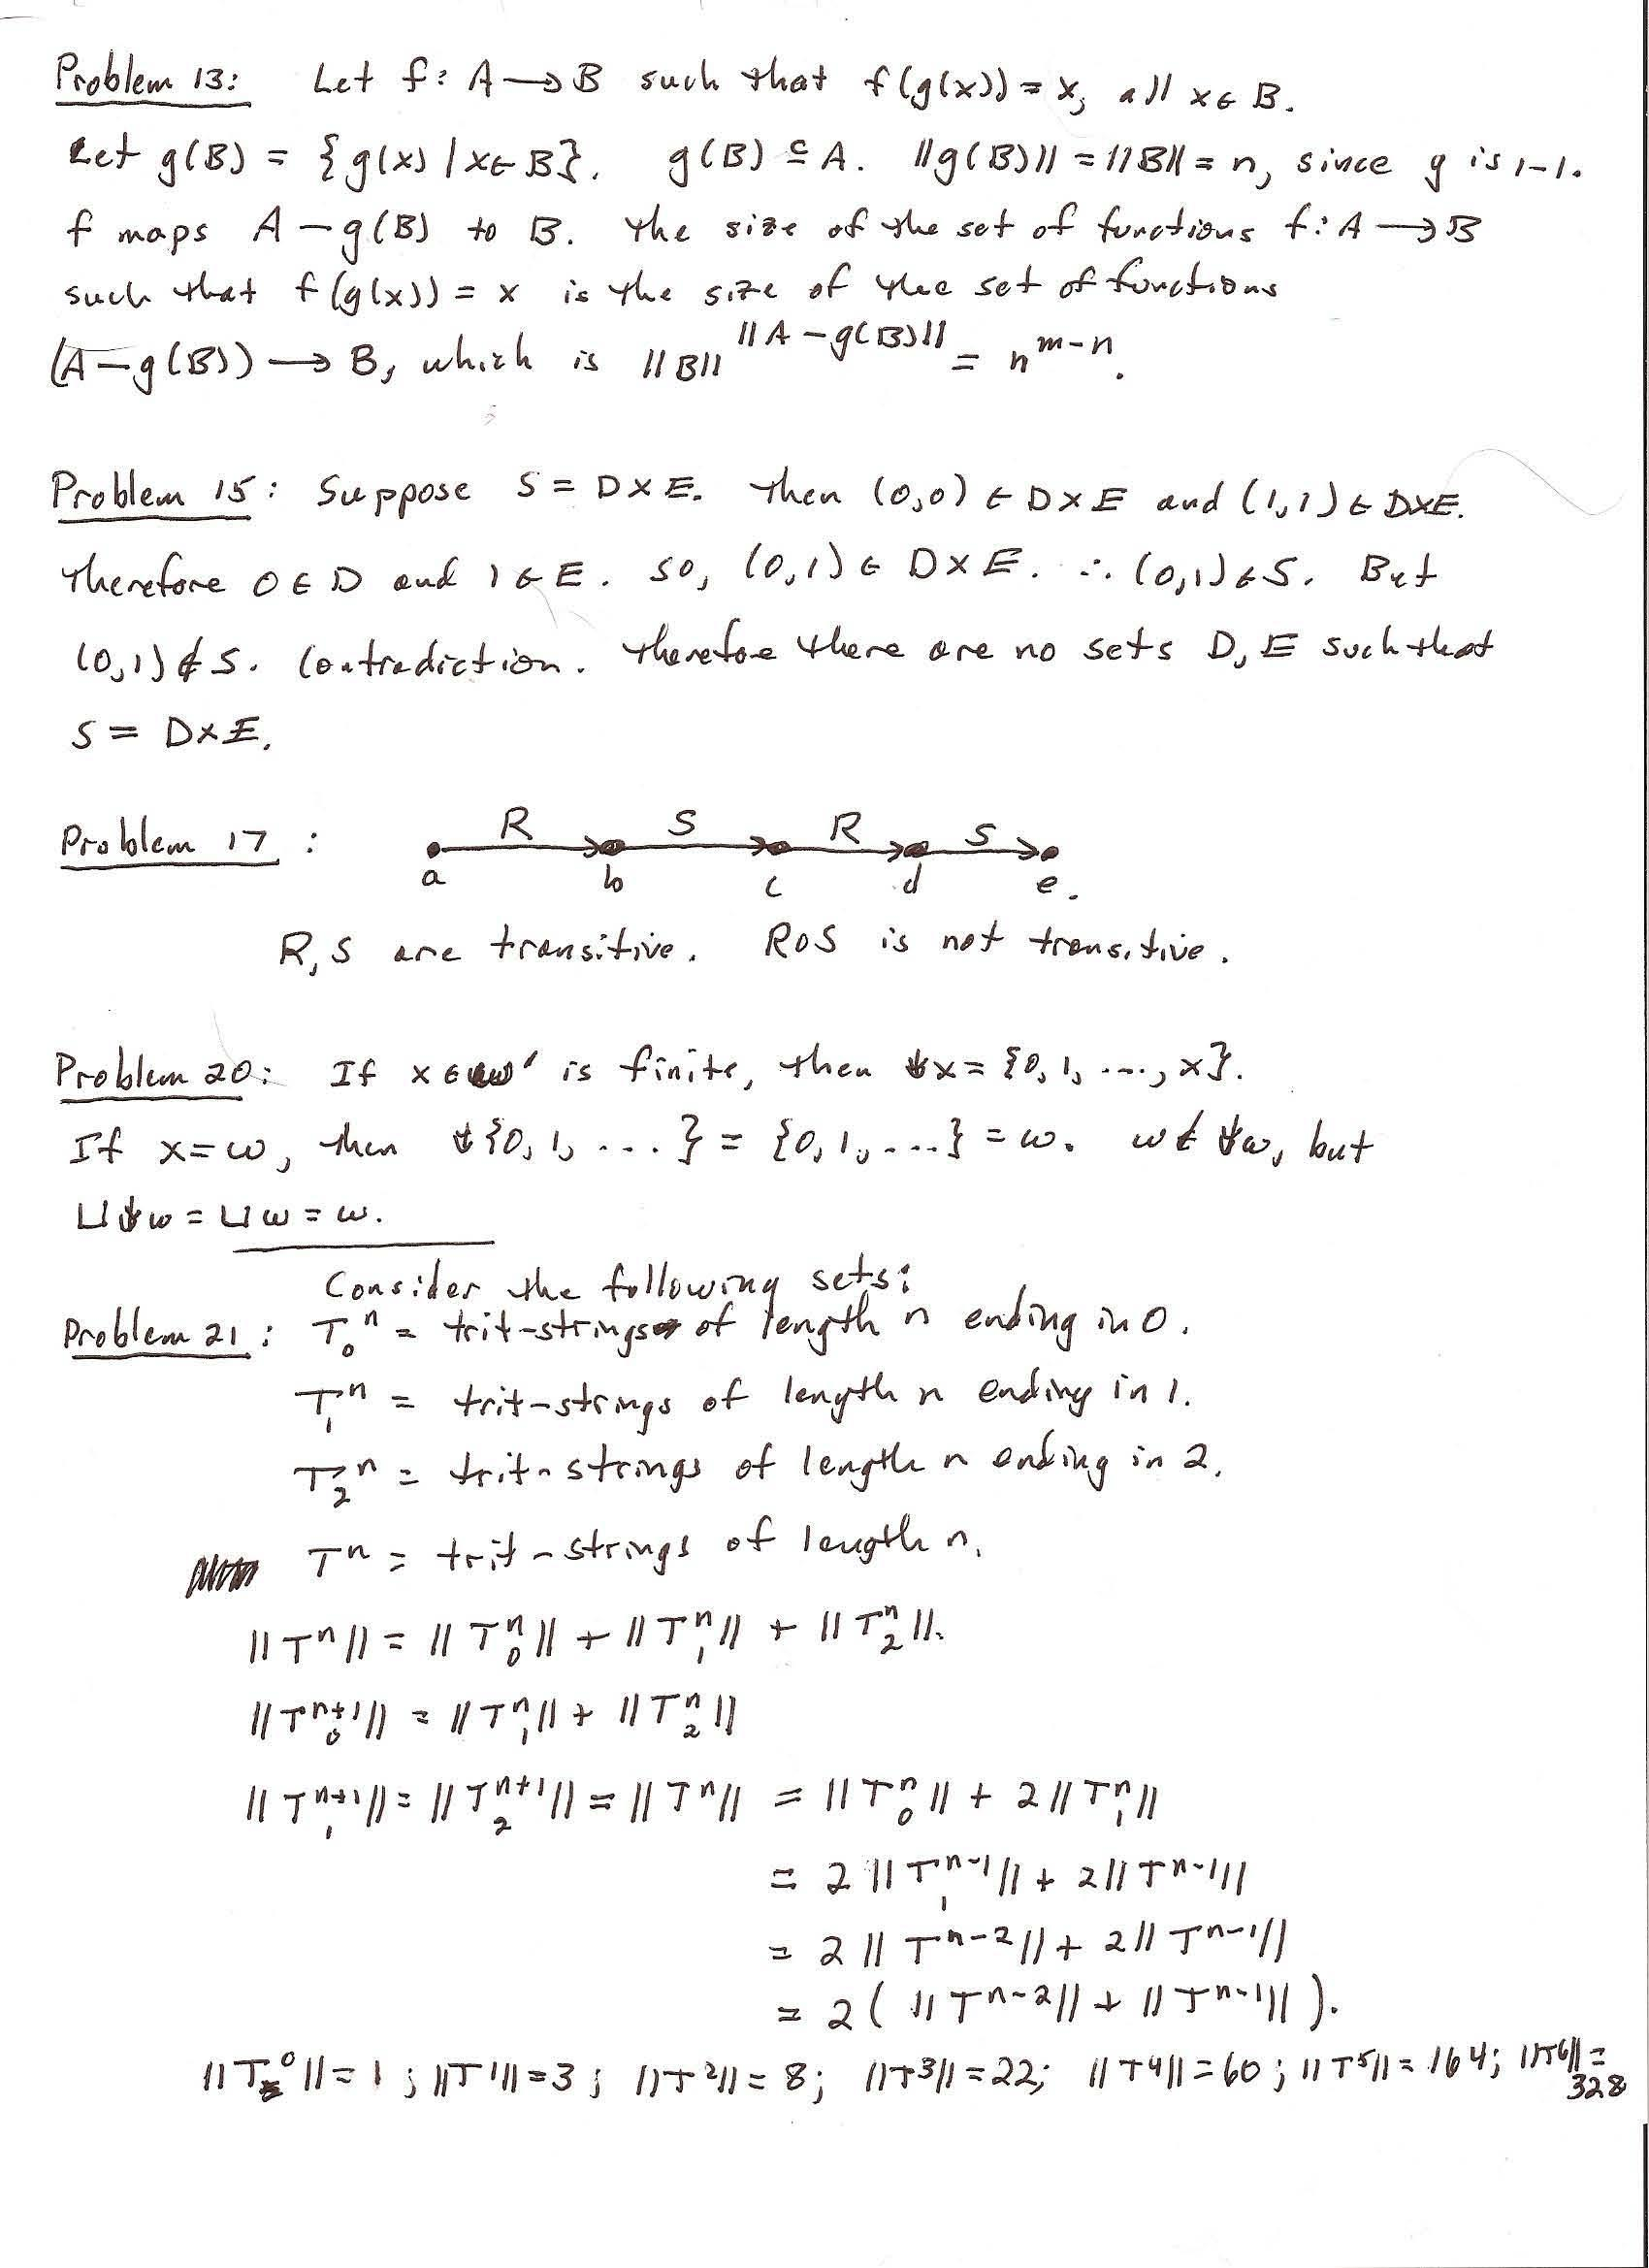 Problem 13: Let f: A → B such that f(g(x)) = x, all x ∈ B.
Let g(B) = {g(x) | x ∈ B}. g(B) ⊆ A. ||g(B)|| = ||B|| = n, since g is 1-1.
f maps A − g(B) to B. The size of the set of functions f: A → B
such that f(g(x)) = x is the size of the set of functions
(A − g(B)) → B, which is ||B||^||A − g(B)|| = n^m−n.
Problem 15: Suppose S = D×E. Then (0,0) ∈ D×E and (1,1) ∈ D×E.
Therefore 0 ∈ D and 1 ∈ E. So, (0,1) ∈ D×E. ∴ (0,1) ∈ S. But
(0,1) ∉ S. Contradiction. Therefore there are no sets D, E such that
S = D×E.
Problem 17:
R S R S
a b c d e.
R, S are transitive. R∘S is not transitive.
Problem 20: If x ∈ ω' is finite, then ↓x = {0, 1, ..., x}.
If x = ω, then ↓{0, 1, ...} = {0, 1, ...} = ω. ω ∉ ↓ω, but
⊔↓ω = ⊔ω = ω.
Consider the following sets:
Problem 21: T₀ⁿ = trit-strings of length n ending in 0.
T₁ⁿ = trit-strings of length n ending in 1.
T₂ⁿ = trit-strings of length n ending in 2.
Tⁿ = trit-strings of length n.
||Tⁿ|| = ||T₀ⁿ|| + ||T₁ⁿ|| + ||T₂ⁿ||.
||T₀ⁿ⁺¹|| = ||T₁ⁿ|| + ||T₂ⁿ||
||T₁ⁿ⁺¹|| = ||T₂ⁿ⁺¹|| = ||Tⁿ|| = ||T₀ⁿ|| + 2||T₁ⁿ||
= 2||T₁ⁿ⁻¹|| + 2||Tⁿ⁻¹||
= 2||Tⁿ⁻²|| + 2||Tⁿ⁻¹||
= 2(||Tⁿ⁻²|| + ||Tⁿ⁻¹||).
||T⁰|| = 1; ||T¹|| = 3; ||T²|| = 8; ||T³|| = 22; ||T⁴|| = 60; ||T⁵|| = 164; ||T⁶|| =
328